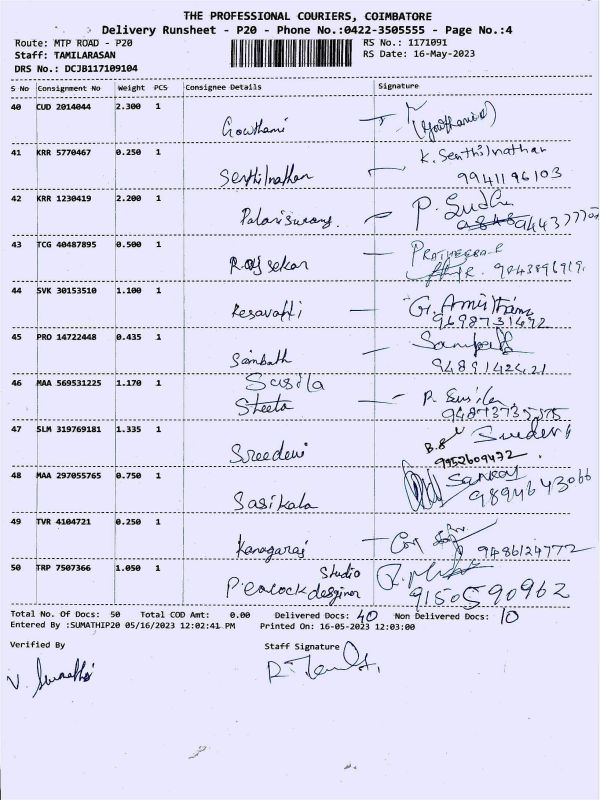 THE PROFESSIONAL COURIERS, COIMBATORE
Delivery Runsheet - P20 - Phone No.:0422-3505555 - Page No.:4
Route: MTP ROAD - P20 RS No.: 1171091
Staff: TAMILARASAN RS Date: 16-May-2023
DRS No.: DCJB117109104
S No Consignment No Weight PCS Consignee Details Signature
40 CUD 2014044 2.300 1
Gowthami (Gowthami)
41 KRR 5770467 0.250 1 K. Senthilnathan
Senthilnathan 9941196103
42 KRR 1230419 2.200 1 P. Sudha
Palaniswamy.
43 TCG 40487895 0.500 1
Rajsekar 9043896919.
44 SVK 30153510 1.100 1
Kesavahi 9698731472
45 PRO 14722448 0.435 1
Sambath 9489142421
46 MAA 569531225 1.170 1 Susila P. Susila
Sheeta
47 SLM 319769181 1.335 1
Sreedevi 9952609472.
48 MAA 297055765 0.750 1
Sasikala 9894643066
49 TVR 4104721 0.250 1
Kanagaraj 9486124772
50 TRP 7507366 1.050 1 Studio
Peacock desginer 9150590962
Total No. Of Docs: 50 Total COD Amt: 0.00 Delivered Docs: 40 Non Delivered Docs: 10
Entered By :SUMATHIP20 05/16/2023 12:02:41 PM Printed On: 16-05-2023 12:03:00
Verified By Staff Signature
V. Sumathi